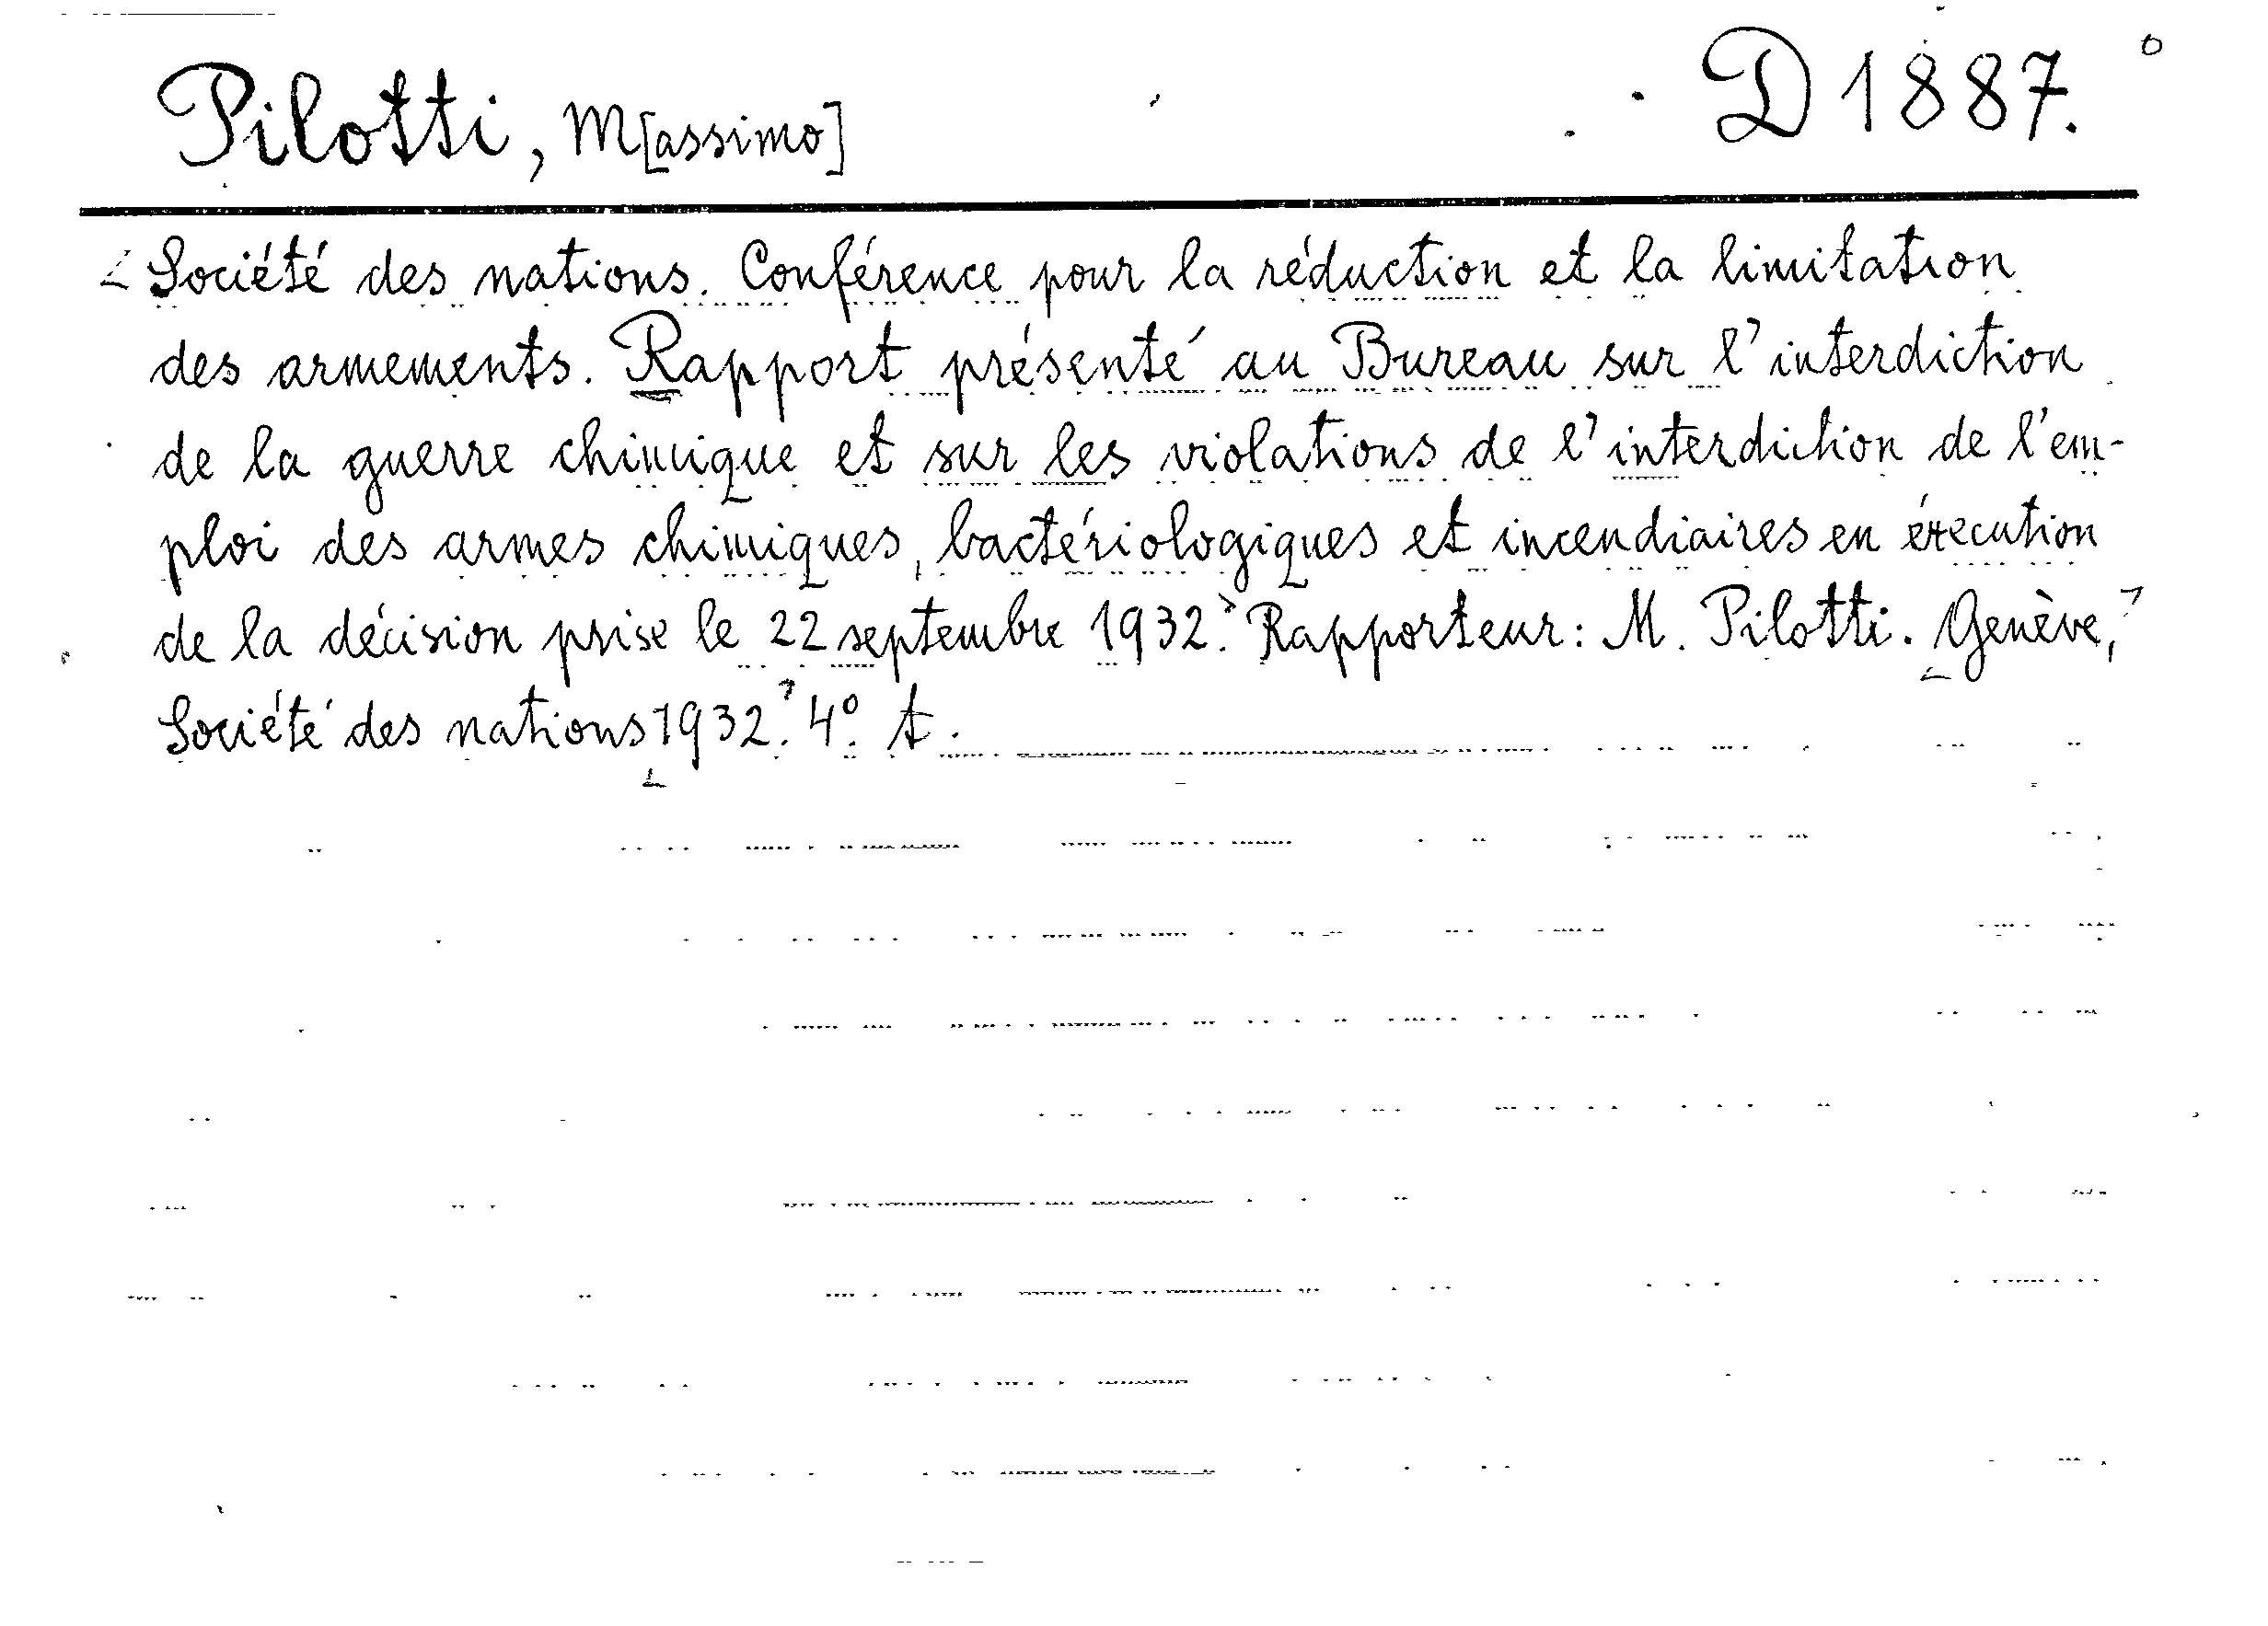 Pilotti, M[assimo]
D 1887.
Société des nations. Conférence pour la réduction et la limitation
des armements. Rapport présenté au Bureau sur l'interdiction
de la guerre chimique et sur les violations de l'interdiction de l'em-
ploi des armes chimiques, bactériologiques et incendiaires en éxecution
de la décision prise le 22 septembre 1932. Rapporteur: M. Pilotti. Genève,
Société des nations 1932. 4°. t.